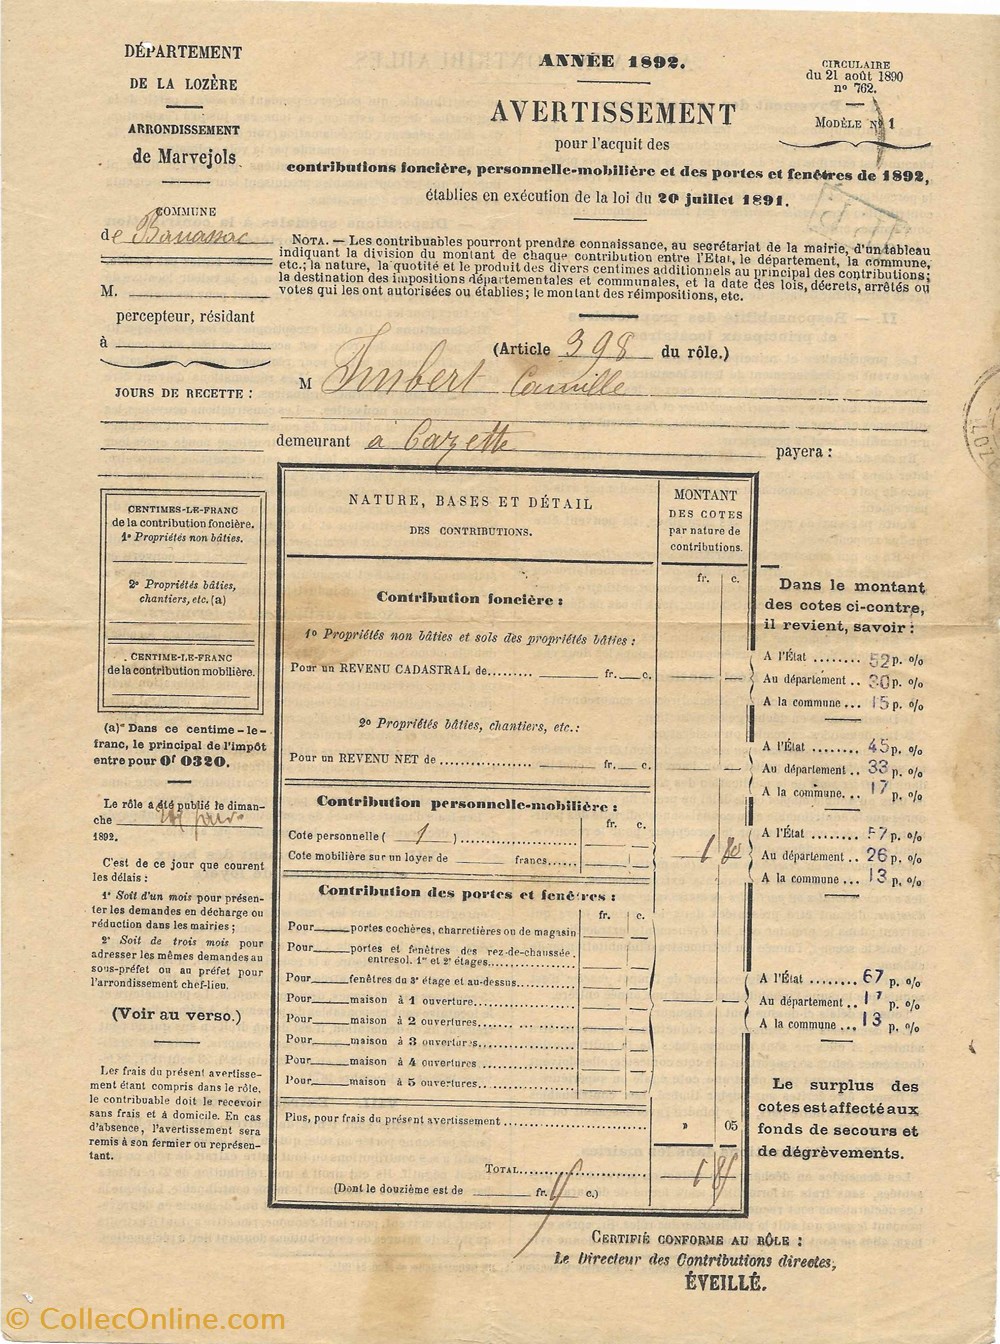 DÉPARTEMENT
DE LA LOZÈRE
ARRONDISSEMENT
de Marvejols
COMMUNE
de Banassac
M.
percepteur, résidant
à
JOURS DE RECETTE :
CENTIMES-LE-FRANC
de la contribution foncière.
1º Propriétés non bâties.
2º Propriétés bâties,
chantiers, etc. (a)
CENTIME-LE-FRANC
de la contribution mobilière.
(a) Dans ce centime-le-
franc, le principal de l'impôt
entre pour 0f 0320.
Le rôle a été publié le diman-
che
1892.
C'est de ce jour que courent
les délais :
1º Soit d'un mois pour présen-
ter les demandes en décharge ou
réduction dans les mairies ;
2º Soit de trois mois pour
adresser les mêmes demandes au
sous-préfet ou au préfet pour
l'arrondissement chef-lieu.
(Voir au verso.)
Les frais du présent avertisse-
ment étant compris dans le rôle,
le contribuable doit le recevoir
sans frais et à domicile. En cas
d'absence, l'avertissement sera
remis à son fermier ou représen-
tant.
ANNÉE 1892.
AVERTISSEMENT
pour l'acquit des
contributions foncière, personnelle-mobilière et des portes et fenêtres de 1892,
établies en exécution de la loi du 20 juillet 1891.
CIRCULAIRE
du 21 août 1890
nº 762.
MODÈLE Nº 1
NOTA. — Les contribuables pourront prendre connaissance, au secrétariat de la mairie, d'un tableau
indiquant la division du montant de chaque contribution entre l'État, le département, la commune,
etc.; la nature, la quotité et le produit des divers centimes additionnels au principal des contributions;
la destination des impositions départementales et communales, et la date des lois, décrets, arrêtés ou
votes qui les ont autorisées ou établies; le montant des réimpositions, etc.
(Article 398 du rôle.)
M Imbert Camille
demeurant à Cazette payera :
NATURE, BASES ET DÉTAIL
DES CONTRIBUTIONS.
MONTANT
DES COTES
par nature de
contributions.
fr. c.
Contribution foncière :
1º Propriétés non bâties et sols des propriétés bâties :
Pour un REVENU CADASTRAL de......... fr. c.
2º Propriétés bâties, chantiers, etc.:
Pour un REVENU NET de .................. fr. c.
Contribution personnelle-mobilière :
fr. c.
Cote personnelle ( 1 ) ........................
Cote mobilière sur un loyer de francs,......
1 80
Contribution des portes et fenêtres :
fr. c.
Pour portes cochères, charretières ou de magasin
Pour portes et fenêtres des rez-de-chaussée,
entresol, 1er et 2e étages
Pour fenêtres du 3e étage et au-dessus
Pour maison à 1 ouverture
Pour maison à 2 ouvertures
Pour maison à 3 ouvertures
Pour maison à 4 ouvertures
Pour maison à 5 ouvertures
Plus, pour frais du présent avertissement » 05
TOTAL 1 85
(Dont le douzième est de fr. c.)
Dans le montant
des cotes ci-contre,
il revient, savoir :
A l'État ........ 52 p. %
Au département .. 30 p. %
A la commune ... 15 p. %
A l'État ........ 45 p. %
Au département .. 33 p. %
A la commune... 17 p. %
A l'État ........ 57 p. %
Au département .. 26 p. %
A la commune ... 13 p. %
A l'État ........ 67 p. %
Au département .. 17 p. %
A la commune ... 13 p. %
Le surplus des
cotes est affecté aux
fonds de secours et
de dégrèvements.
CERTIFIÉ CONFORME AU RÔLE :
Le Directeur des Contributions directes,
ÉVEILLÉ.
© CollecOnline.com